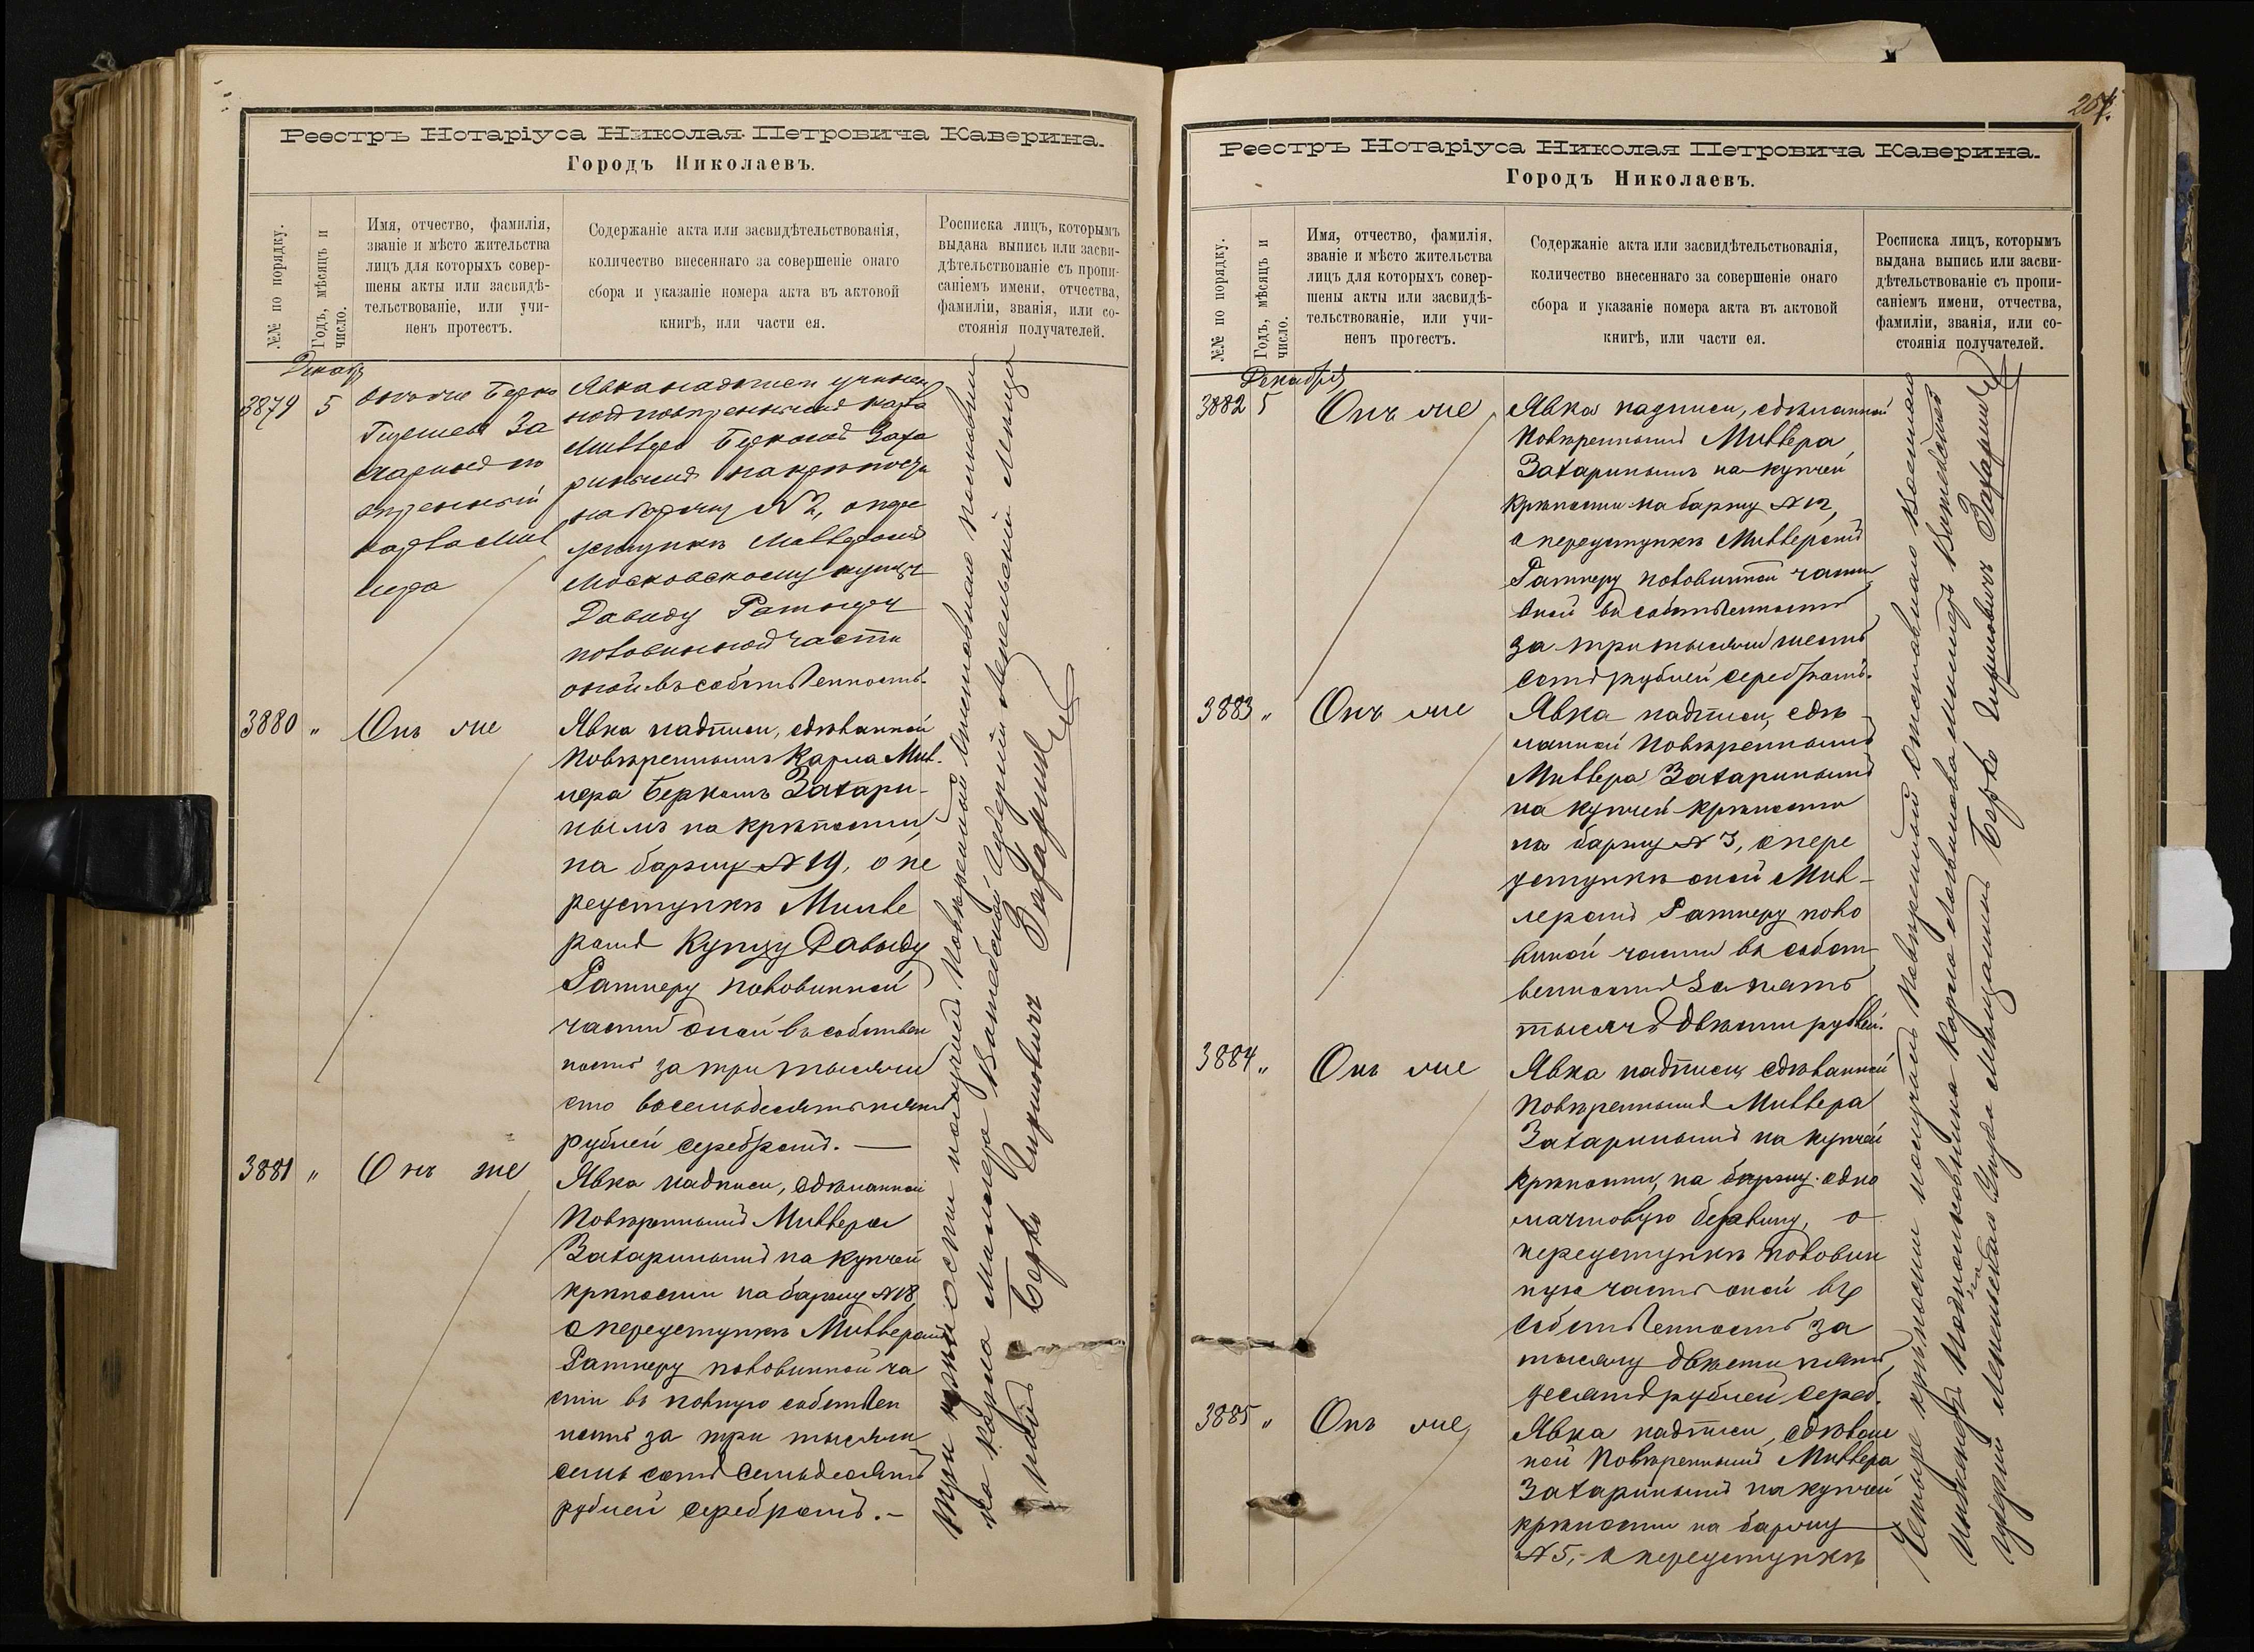 Реестръ Нотаріуса Николая Петровича Каверина.
Городъ Николаевъ.
№№ по порядку.
Годъ, мѣсяцъ и
число.
Имя, отчество, фамилія,
званіе и мѣсто жительства
лицъ для которыхъ совер-
шены акты или засвидѣ-
тельствованіе, или учи-
ненъ протестъ.
Содержаніе акта или засвидѣтельствованія,
количество внесеннаго за совершеніе онаго
сбора и указаніе номера акта въ актовой
книгѣ, или части ея.
Росписка лицъ, которымъ
выдана выпись или засви-
дѣтельствованіе съ пропи-
саніемъ имени, отчества,
фамиліи, званія, или со-
стоянія получателей.
3879 5
Берко
За
Явка надписи
Берком Заха
на крѣпости
на баржу № 2, о пере
уступкѣ
Московскому купцу
Давиду Ратнеру
половинной части
оной въ собственность.
3880 "
Онъ же
Явка надписи, сдѣланной
Повѣреннымъ Карла Мил-
лера Беркомъ Захари-
нымъ на крѣпости
на баржу № 19, о пе
реуступкѣ Милле
ромъ Купцу Давыду
Ратнеру половинной
части оной въ собствен
ность за три тысячи
сто восемьдесятъ пять
рублей серебромъ. —
3881 "
Онъ же
Явка надписи, сдѣланной
Повѣреннымъ Миллера
Захаринымъ на купчей
крѣпости на баржу № 18,
о переуступкѣ Миллеромъ
Ратнеру половинной ча
сти въ полную собствен
ность за три тысячи
семь сотъ семьдесятъ
рублей серебромъ. –
Три крѣпости получилъ Повѣренный
Карла Миллера
Берко Гиршовичъ Захаринъ
207.
Реестръ Нотаріуса Николая Петровича Каверина.
Городъ Николаевъ.
№№ по порядку.
Годъ, мѣсяцъ и
число.
Имя, отчество, фамилія,
званіе и мѣсто жительства
лицъ для которыхъ совер-
шены акты или засвидѣ-
тельствованіе, или учи-
ненъ протестъ.
Содержаніе акта или засвидѣтельствованія,
количество внесеннаго за совершеніе онаго
сбора и указаніе номера акта въ актовой
книгѣ, или части ея.
Росписка лицъ, которымъ
выдана выпись или засви-
дѣтельствованіе съ пропи-
саніемъ имени, отчества,
фамиліи, званія, или со-
стоянія получателей.
Декабря
3882 5
Онъ же
Явка надписи, сдѣланной
Повѣреннымъ Миллера
Захаринымъ на купчей
крѣпости на баржу № 12,
о переуступкѣ Миллеромъ
Ратнеру половинной части
оной въ собственность
за три тысячи шесть
сотъ рублей серебромъ.
3883 "
Онъ же
Явка надписи, сдѣ
ланной Повѣреннымъ
Миллера Захаринымъ
на купчей крѣпости
на баржу № 3, о пере
уступкѣ оной Мил-
леромъ Ратнеру поло
винной части въ собст
венность за пять
тысячъ двѣсти рублей.
3884 "
Онъ же
Явка надписи, сдѣланной
Повѣреннымъ Миллера
Захаринымъ на купчей
крѣпости, на баржу одно
мачтовую Берлину, о
переуступкѣ половин
ную часть оной въ
собственность за
тысячу двѣсти пять
десятъ рублей сереб.
3885 "
Онъ же
Явка надписи, сдѣлан
ной Повѣреннымъ Миллера
Захаринымъ на купчей
крѣпости на баржу
№ 5, о переуступкѣ
Четыре крѣпости получилъ Повѣренный
Карла
Берко Гиршовичъ Захаринъ